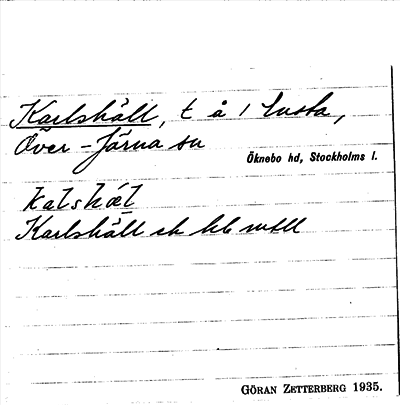 Karlshäll, t å 1 Lusta,
Över-Järna sn
Öknebo hd, Stockholms l.
kalshæl
Karlshäll ek hb
GÖRAN ZETTERBERG 1935.